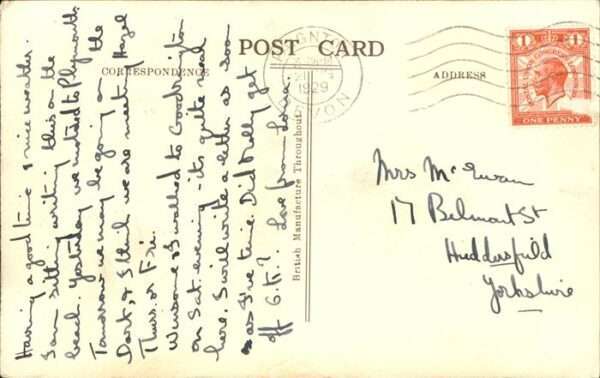 POST CARD
CORRESPONDENCE
ADDRESS
PAIGNTON
1929
DEVON
1 1
ONE PENNY
British Manufacture Throughout
Having a good time & nice weather.
Sam sitting writing this on the
beach. Yesterday we motored to Plymouth
Tomorrow we may be going on the
Dart, & I think we are meeting Hazel
Thurs. or Fri.
Winsome & I walked to Goodrington
on Sat. evening - its quite near
here. I will write a letter as soon
as I've time. Did Nelly get
off O.K.? Love from Lorna.
Mrs McEwan
17 Belmont St
Huddersfield
Yorkshire